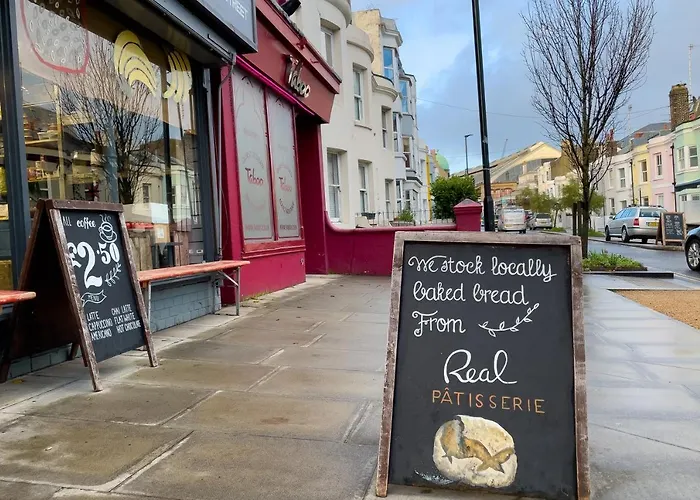 STREET
Taboo
Taboo
ALL COFFEE
£2.50
MENU
LATTE
CAPPUCCINO
AMERICANO
CHAI LATTE
FLAT WHITE
HOT CHOCOLATE
We stock locally
baked bread
From
Real
PÂTISSERIE